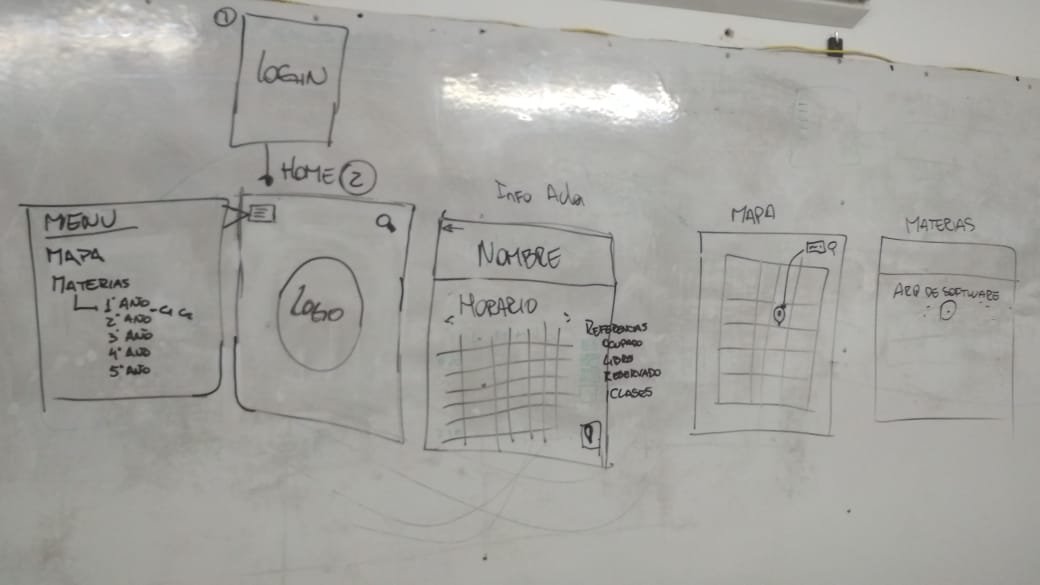 1
LOGIN
HOME 2
MENU
MAPA
MATERIAS
1° AÑO
2° AÑO
3° AÑO
4° AÑO
5° AÑO
LOGO
Info Aula
NOMBRE
HORARIO
REFERENCIAS
OCUPADO
LIBRE
RESERVADO
CLASES
MAPA
MATERIAS
ARQ DE SOFTWARE